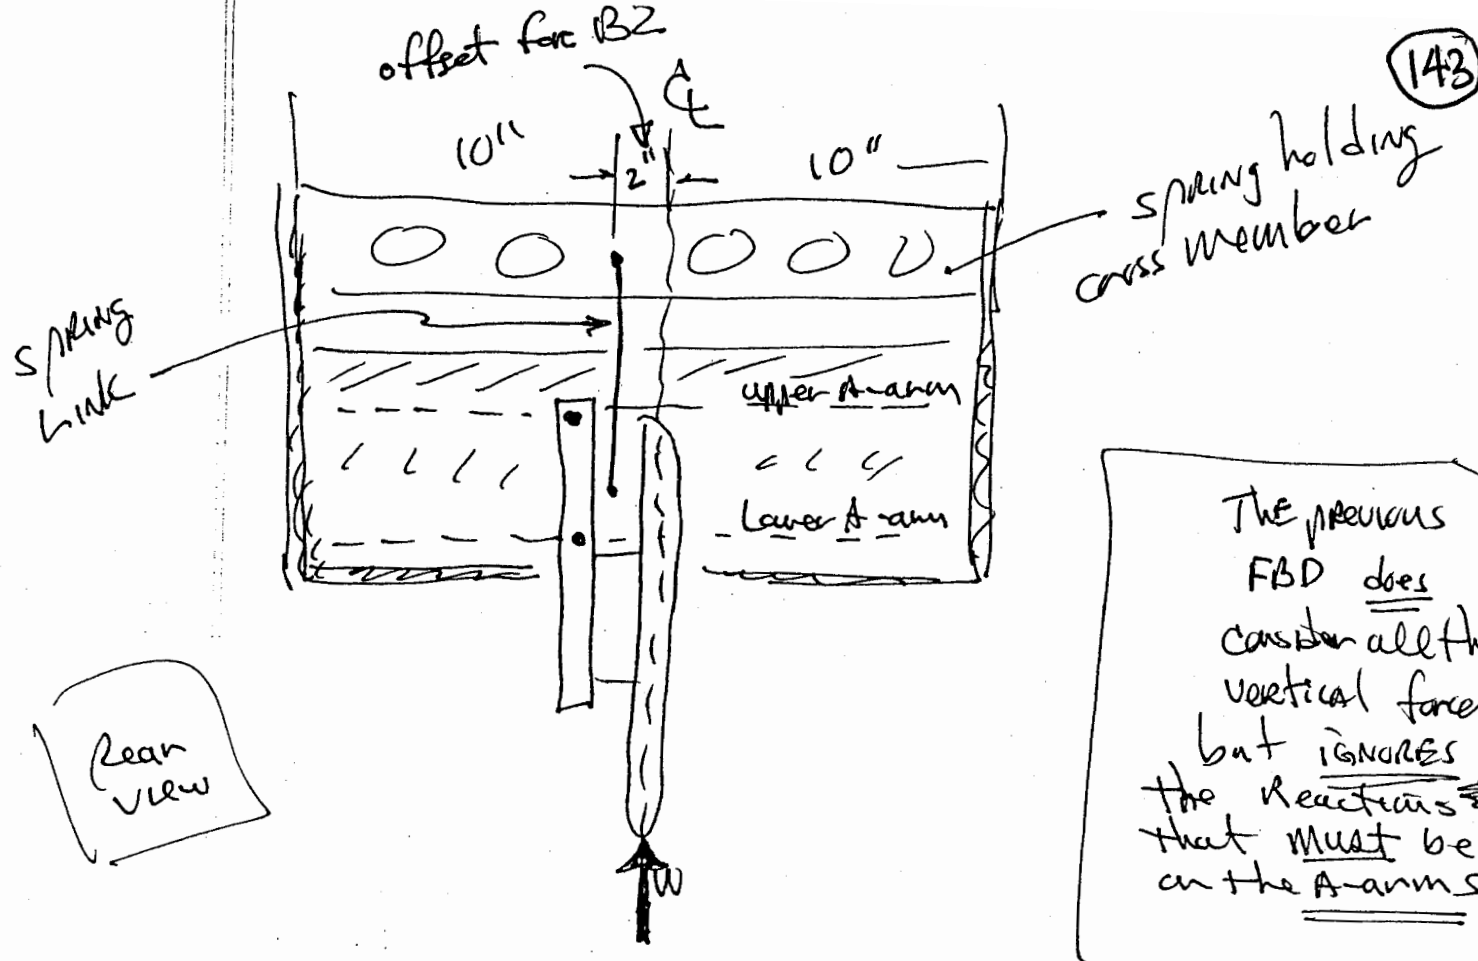 offset for BZ
143
℄
10"
2"
10"
spring holding
cross member
spring
Link
upper A-arm
Lower A-arm
Rear
view
W
The previous
FBD does
consider all th
vertical force
but IGNORES
the Reactions
that MUST be
on the A-arms